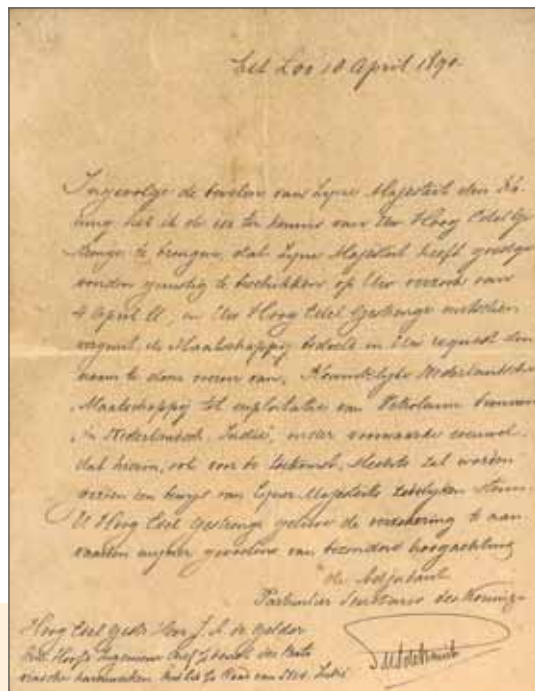 het Loo 18 April 1890.
Ingevolge de bevelen van Zijne Majesteit den Ko-
ning heb ik de eer ter kennis van Uw Hoog Edel Ge-
strenge te brengen, dat Zijne Majesteit heeft goedge-
vonden gunstig te beschikken op Uw verzoek van
4 April ll, en Uw Hoog Edel Gestrenge
vergunt, de Maatschappij bedoeld in Uw request den
naam te doen voeren van, Koninklijke Nederlandsche
Maatschappij tot exploitatie van Petroleum bronnen
in Nederlandsch Indië, onder voorwaarde evenwel
dat hierin, ook voor de toekomst, slechts zal worden
gezien een bewijs van Zijner Majesteits zedelijken steun.
U Hoog Edel Gestrenge gelieve de verzekering te aan-
vaarden mijner gevoelens van bezondere hoogachting
de Adjudant
Particulier Secretaris des Konings
Hoog Edel Gestr Heer J. A. de Gelder
Hoofd Ingenieur Chef der Bata
viasche havenwerken Raad van Ned. Indië